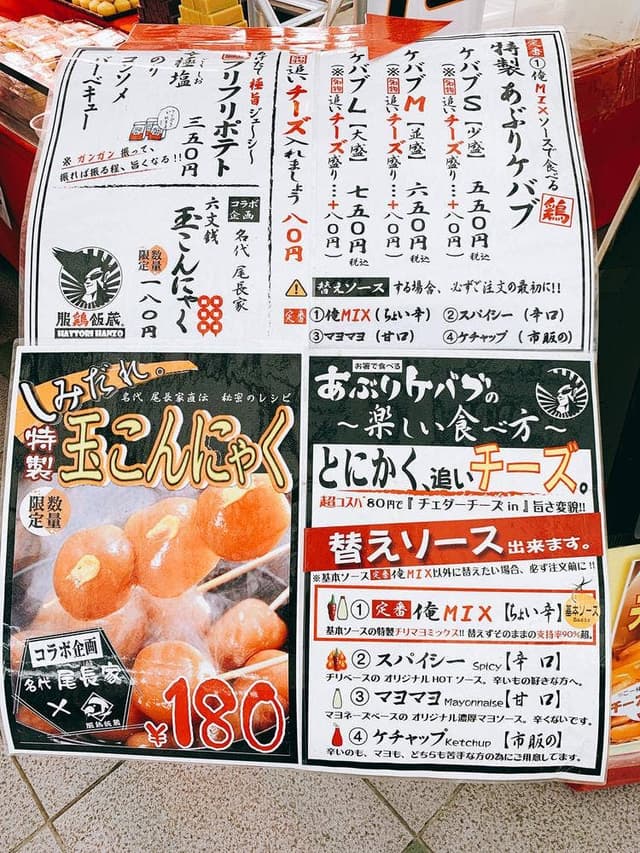 定番①俺MIXソースで食べる
特製 あぶりケバブ 鶏
ケバブS【少盛】 五五〇円 税込
(※名物 追いチーズ盛り…+八〇円)
ケバブM【並盛】 六五〇円 税込
(※名物 追いチーズ盛り…+八〇円)
ケバブL【大盛】 七五〇円 税込
(※名物 追いチーズ盛り…+八〇円)
追いチーズ入れましょう 八〇円
極旨ジューシー
フリフリポテト 三五〇円
のり
コンソメ
バーベキュー
※ガンガン振って、
振れば振る程、旨くなる!!
コラボ企画 名代 尾長家
六文銭
玉こんにゃく
数量限定 一八〇円
服鶏飯蔵
HATTORI HANZO
替えソース する場合、必ずご注文の最初に!!
定番 ①俺MIX(ちょい辛) ②スパイシー (辛口)
③マヨマヨ (甘口) ④ケチャップ (市販の)
しみだれ。
名代 尾長家直伝 秘密のレシピ
特製 玉こんにゃく
数量限定
コラボ企画
名代 尾長家
×
服鶏飯蔵
¥180
お箸で食べる
あぶりケバブの
～楽しい食べ方～
とにかく、追いチーズ。
超コスパ80円で『チェダーチーズin』旨さ変貌!!
替えソース 出来ます。
※基本ソース定番俺MIX以外に替えたい場合、必ず注文前に!!
① 定番 俺MIX【ちょい辛】 基本ソース
基本ソースの特製チリマヨミックス!! 替えずそのままの支持率90%超。
② スパイシー Spicy【辛 口】
チリベースの オリジナルHOT ソース。辛いもの好きな方へ。
③ マヨマヨ Mayonnaise【甘 口】
マヨネーズベースの オリジナル濃厚マヨソース。辛くないです。
④ ケチャップ Ketchup 【市販の】
辛いのも、マヨも、どちらも苦手な方の為にご用意してます。